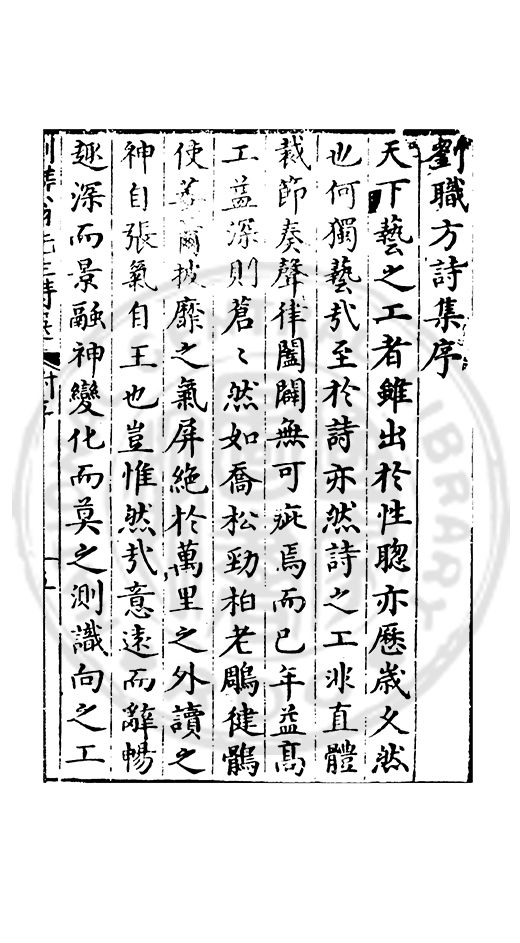 劉職方詩集序
天下藝之工者雖出於性聰亦歷歲久然
也何獨藝㢤至於詩亦然詩之工非直體
裁節奏聲律闔闢無可疵焉而已年益高
工益深則蒼〻然如喬松勁柏老鵰健鶻
使爾披靡之氣屏絶於萬里之外讀之
神自張氣自王也豈惟然㢤意遠而辭暢
趣深而景融神變化而莫之測識向之工
LIBRARY